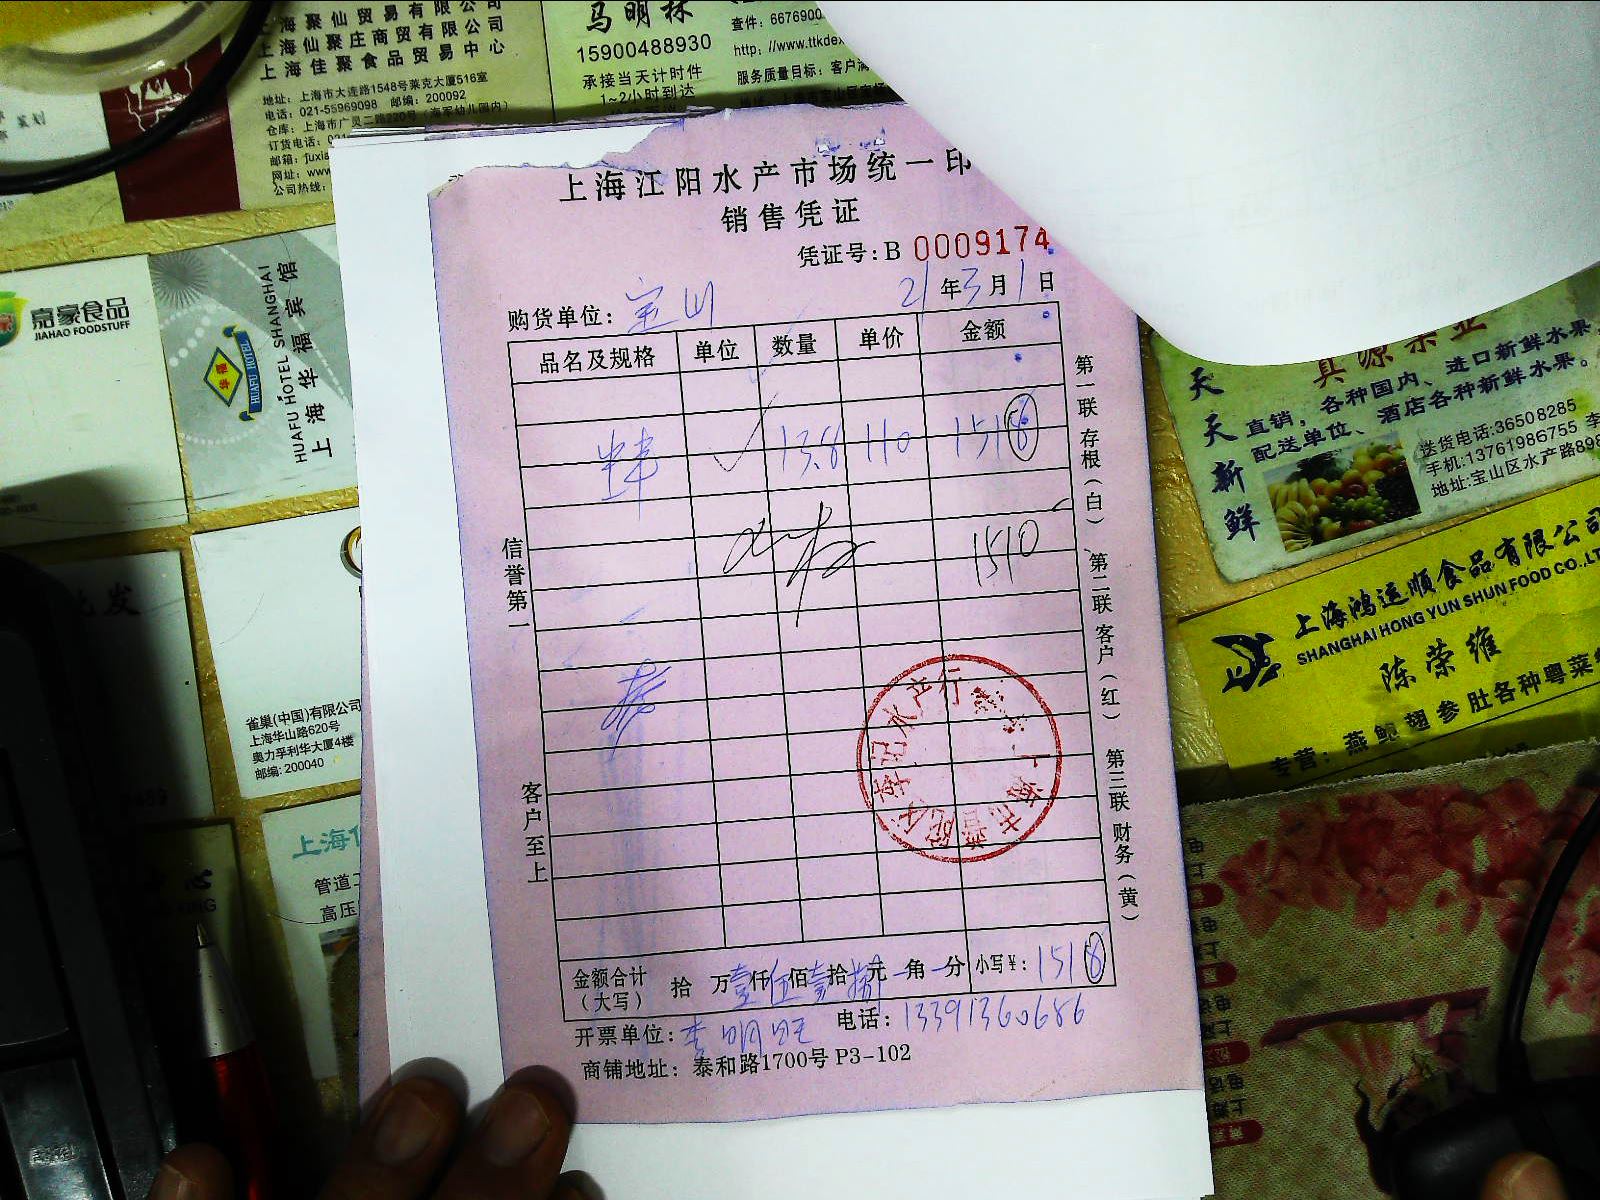 上海聚仙贸易有限公司
上海仙聚庄商贸有限公司
上海佳聚食品贸易中心
地址：上海市大连路1548号莱克大厦516室
电话：021-55969098 邮编：200092
仓库：上海市广灵二路220号（海军幼儿园内）
订货电话：021
邮箱：fuxia
网址：www
公司热线：
马明林
15900488930
承接当天计时件
1~2小时到达
查件：6676900
http：//www.ttkdex
服务质量目标：客户满
嘉豪食品
JIAHAO FOODSTUFF
华福
HUAFU HOTEL
HUAFU HOTEL SHANGHAI
上海华福宾馆
批发
雀巢(中国)有限公司
上海华山路620号
奥力孚利华大厦4楼
邮编: 200040
管道工
高压
上海江阳水产市场统一印
销售凭证
凭证号：B 0009174
购货单位：宝山 21年3月1日
品名及规格 单位 数量 单价 金额
13.8 110 1518
1510
信誉第一
客户至上
第一联 存根（白） 第二联 客户（红） 第三联 财务（黄）
金额合计（大写） 拾 万壹仟伍佰壹拾捌元 角 分 小写¥：1518
开票单位：李明旺 电话：13391360686
商铺地址：泰和路1700号 P3-102
记水产行
天天新鲜
直销，各种国内、进口新鲜水果，
配送单位、酒店各种新鲜水果。
送货电话:36508285
手机:13761986755 李
地址:宝山区水产路898
上海鸿运顺食品有限公司
SHANGHAI HONG YUN SHUN FOOD CO.,LT
陈荣维
专营：燕鲍翅参肚各种粤菜